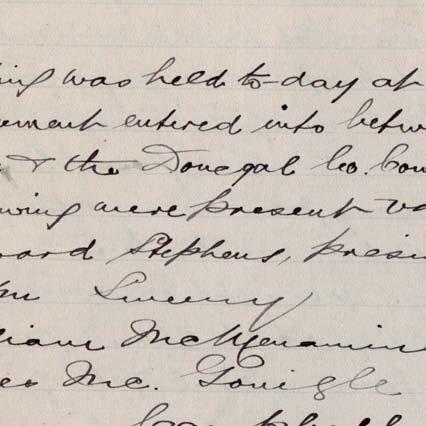 ing was held to-day at
ement entered into betw
& the Donegal Co. Cou
wing were present v
ward Stephens, presi
Sweeny
liam McMenamin
Mc. Gonigle